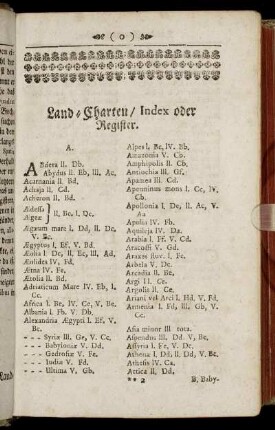 ( o )
Land-Charten/ Index oder
Register.
A.
Abdera II. Db.
Abydus II. Eb, III, Ac,
Acarnania II. Bd.
Achaja II. Cd.
Acheron II. Bd.
Aedessa
Aegeae } II, Bc. I, Qc.
Aegaeum mare I. Dd, II. Dc,
V.
Aegyptus I. Ef, V. Bd.
Aeolia I. De, II. Ec, III, Ad,
Aeolides IV, Fd.
Aetna IV. Fe.
Aetolia II. Bd.
Adriaticum Mare IV. Eb, I.
Cc.
Africa I. Be, IV. Ce, V. Be.
Albania I. Fb, V. Db.
Alexandria Aegypti I. Ef, V,
Bc.
- - - Syriae III. Ge, V. Cc.
- - - Babyloniae V. Dd.
- - - Gedrosiae V. Fe.
- - - Indiae V. Fd.
- - - Ultima V. Gb.
Alpes I. Bc, IV. Bb,
Amazonia V. Cb.
Amphipolis II. Cb.
Antiochia III. Gf,
Apamea III. Cd.
Apenninus mons I. Cc, IV,
Cb.
Apollonia I, De, II. Ac, V.
Aa
Apulia IV. Fb.
Aquileja IV. Da.
Arabia I. Ff. V. Cd.
Aracosii V. Gd.
Araxes fluv. I. Fc.
Arbela V. Dc.
Arcadia II. Be,
Argi II. Ce.
Argolis II. Ce.
Ariani vel Arei I. Hd, V. Fd,
Armenia I. Fd, III, Gb, V.
Cc.
Asia minor III tota.
Aspendus III. Dd, V, Bc,
Assyria I. Fe, V. Dc.
Athenae I, Dd, II. Dd, V, Bc,
Athesis IV. Ca.
Attica II, Dd,
** 2
B, Baby-